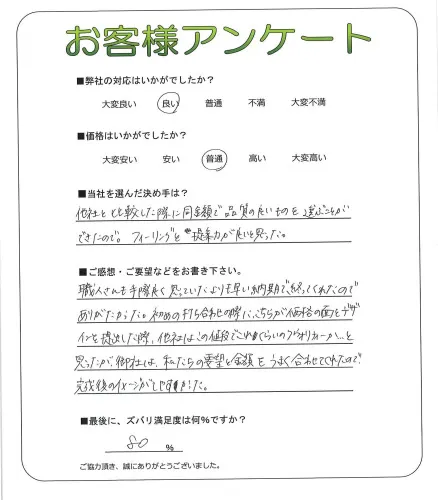 お客様アンケート
■弊社の対応はいかがでしたか？
大変良い 良い 普通 不満 大変不満
■価格はいかがでしたか？
大変安い 安い 普通 高い 大変高い
■当社を選んだ決め手は？
他社と比較した際に同金額で品質の良いものを選ぶことが
できたので。フィーリングと提案力が良いと思った。
■ご感想・ご要望などをお書き下さい。
職人さんも手際良く思っていたよりも早い納期で終ってくれたので
ありがたかった。初めの打ち合わせの際に、こちらが価格の面とデザ
インを提出した際、他社はこの値段でこれぐらいのクオリティーか…と
思ったが、御社は、私たちの要望と金額をうまく合わせてくれたので
完成後のイメージがしやすかった。
■最後に、ズバリ満足度は何%ですか？
80 %
ご協力頂き、誠にありがとうございました。